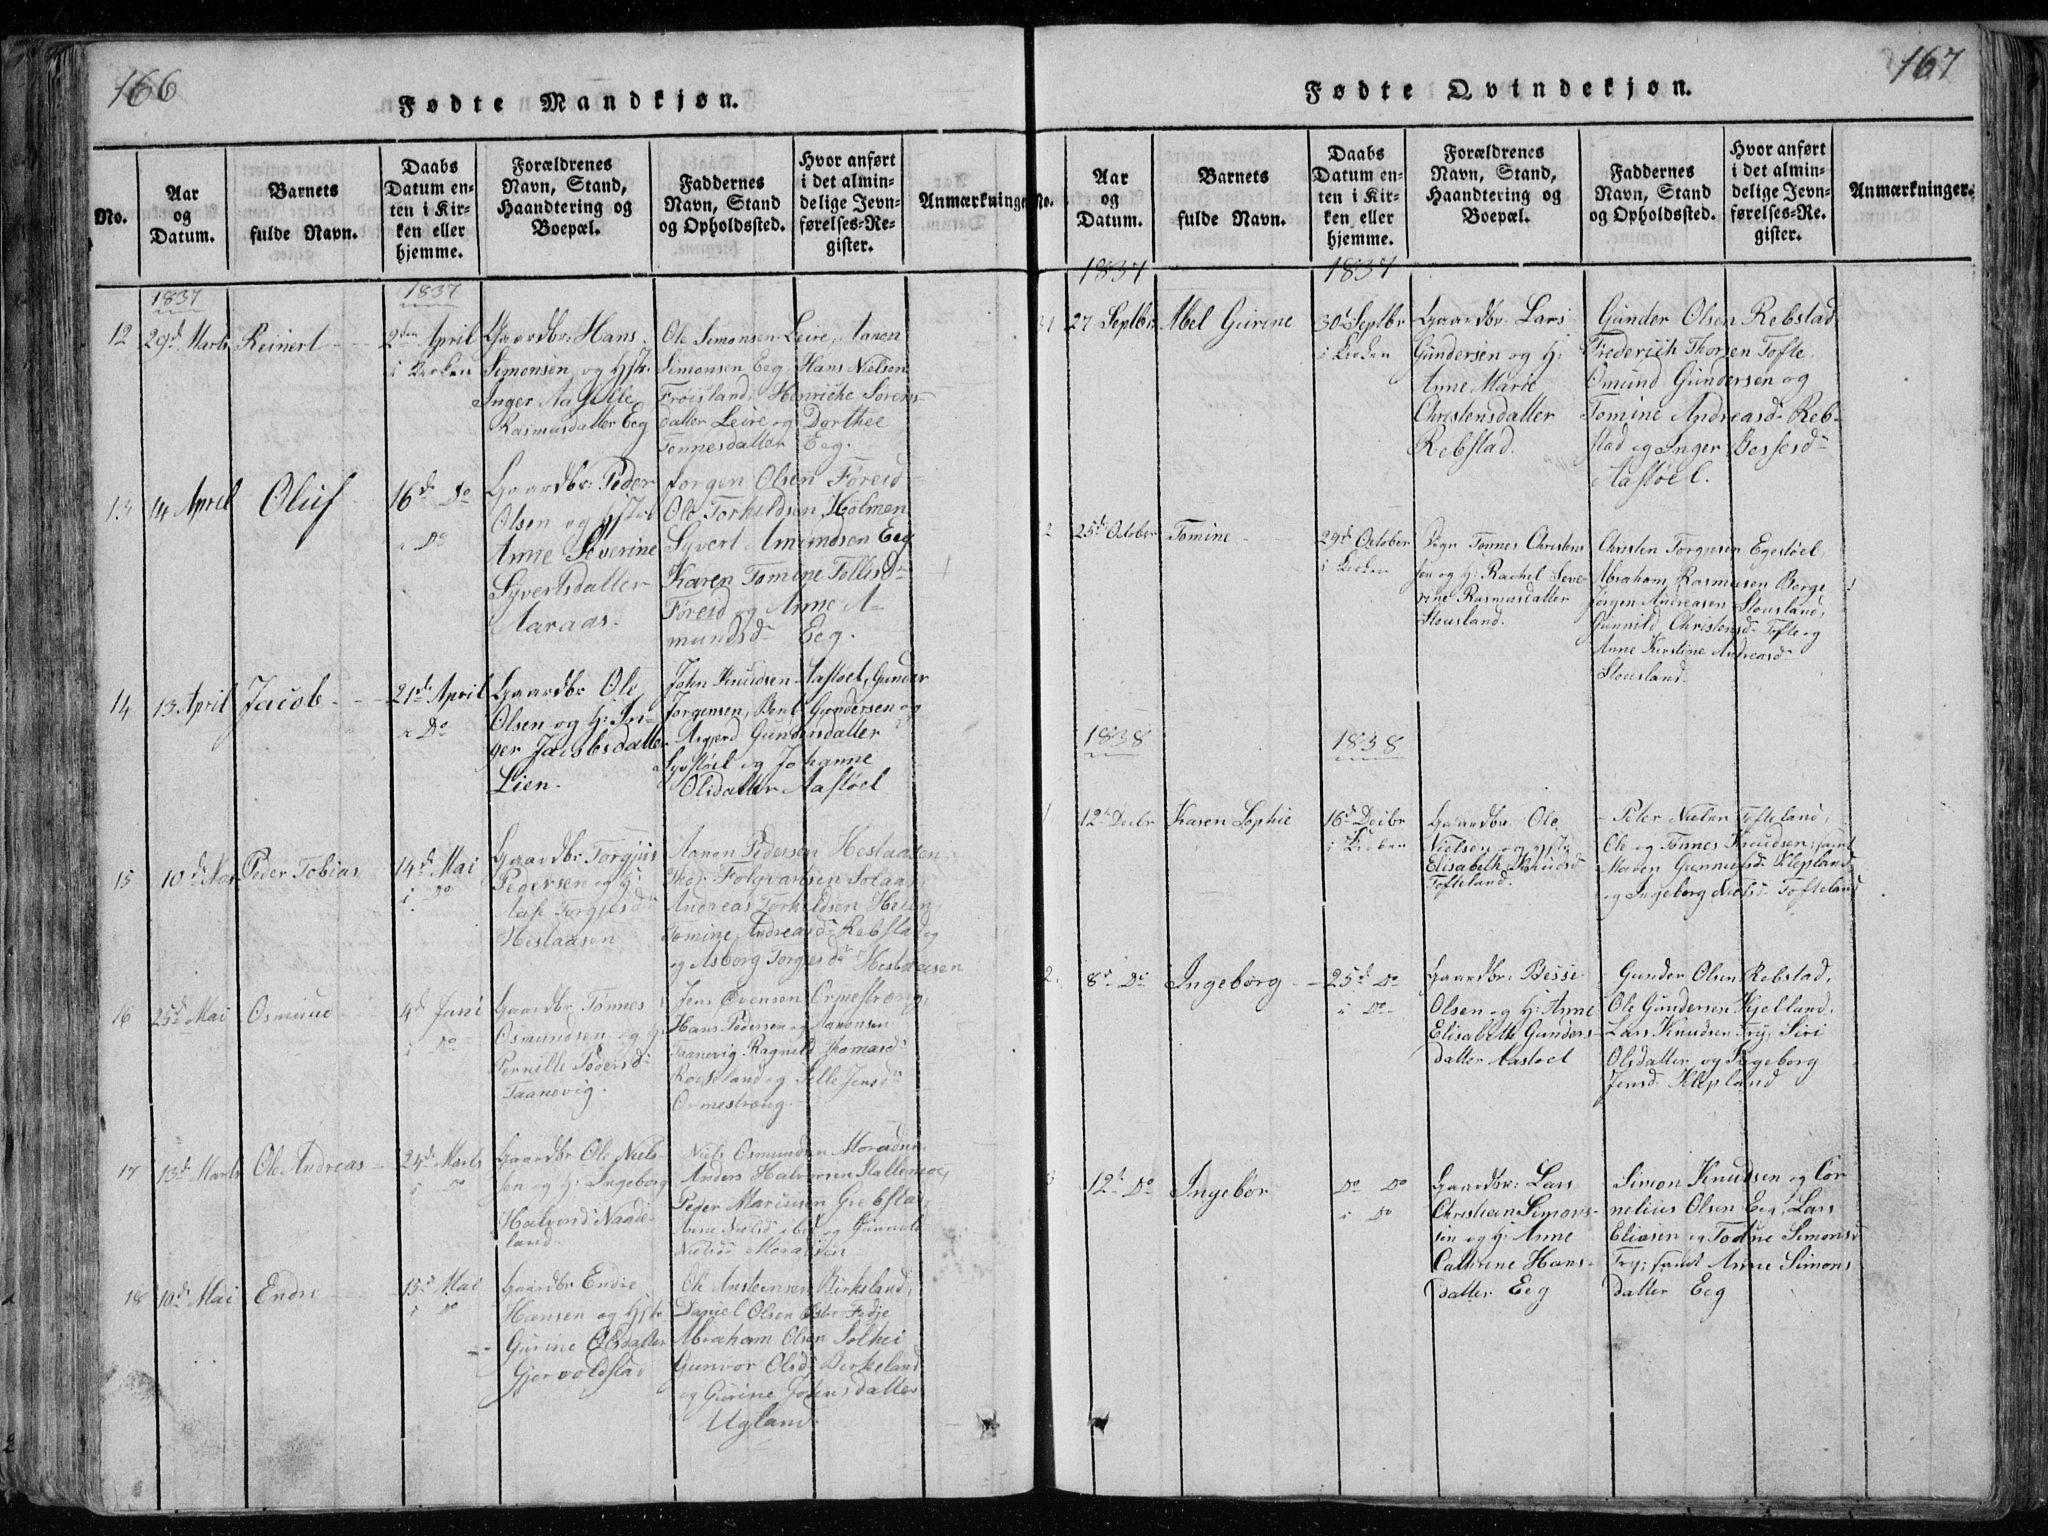 166
Fødte Mandkjøn.
No.
Aar
og
Datum.
Barnets
fulde Navn.
Daabs
Datum en-
ten i Kir-
ken eller
hjemme.
Forældrenes
Navn, Stand,
Haandtering og
Boepæl.
Faddernes
Navn, Stand
og Opholdssted.
Hvor anført
i det almin-
delige Jevn-
førelses-Re-
gister.
Anmærkninge
1837
1837
12
29d Marts
Reinert
2den April
i Kirken
Gaardbr: Hans
Simonsen og Hstr:
Inger Aaselle
Rasmusdatter Eeg
Ole Simonsen Leire, Aanon
Simonsen Eeg, Hans Nielsen
Frøisland, Henriche Sørens-
datter Leire og Dorthee
Tønnesdatter Eeg.
13
14 April
Oluf
16d Do
i Do
Gaardbr: Peder
Olsen og Hstr:
Anne Severine
Syvertsdatter
Aaraas.
Jørgen Olsen Føreid
Ole Torkildsen Holmen
Syvert Amundsen Eeg
Karen Tomine Tellisd
Føreid og Anne A-
mundsd Eeg.
14
13 April
Jacob
21d April
i Do
Gaardbr Ole
Olsen og H: In-
ger Jacobsdatter
Lien.
John Knudsen Aastøel, Gunder
Jørgensen, Bent Gundersen og
Asgjerd Gundersdatter
Syvstøel og Johanne
Olsdatter Aastøel
15
10d Mai
Peder Tobias
14d Mai
i Do
Gaardbr: Torgjus
Pedersen og H:
Aase Torgjusd
Heslaasen
Aanon Pedersen Heslaasen,
Thor Folqvartsen Solaas,
Andreas Torkildsen Helen,
Tomine Andreasd Rebstad og
og Asborg Torgjusd Heslaasen
16
25d Mai
Osmund
4d Juni
i Do
Gaardbr Tønnes
Osmundsen og H:
Pernille Pedersd
Taanevig.
Jens Evensen Ormestrong,
Hans Pedersen og Aanonsen
Taanevig Ragnild Thomasd
Roseland og Sille Jensd
Ormestrong.
17
13d Marts
Ole Andreas
24d Marts
i Do
Gaardbr Ole Niel-
sen og H: Ingeborg
Halvorsd Naade-
land.
Niels Osmundsen
Anders Halvorsen Stallemoe,
Peder Mariusen Grebstad,
Anne Nielsd ibid og Gunvald
18
10d Mai
Endre
15d Mai
i Do
Gaardbr Endre
Hansen og Hstr
Gurine Olsdatter
Gjervoldstad
Ole Ansteensen Birkeland,
Daniel Olsen Øster Fedje
Abraham Olsen Solhei
Gunvor Olsd Birkeland
og Gurine Johnsdatter
Ugland.
167
Fødte Qvindekjøn.
No.
Aar
og
Datum.
Barnets
fulde Navn.
Daabs
Datum en-
ten i Kir-
ken eller
hjemme.
Forældrenes
Navn, Stand,
Haandtering og
Boepæl.
Faddernes
Navn, Stand
og Opholdssted.
Hvor anført
i det almin-
delige Jevn-
førelses-Re-
gister.
Anmærkninger.
1837
1837
27 Septbr
Abel Gurine
30d Septbr
i Kirken
Gaardbr. Lars
Gundersen og H:
Anne Marie
Christensdatter
Rebstad.
Gunder Olsen Rebstad
Frederich Thorsen Tofte,
Omund Gundersen og
Tomine Andreasd Reb-
stad og Inger Bessesd
Aastøel.
2
25d October
Tomine
29d October
i Kirken
Tønnes Christen
sen og H: Rachel Seve-
rine Rasmusdatter
Stousland.
Christen Torgusen Egestøel,
Abraham Rasmussen Berge
Jørgen Andreasen Stousland,
Gunnild Christensd Tofte og
Anne Kirstine Andreasd
Stousland.
1838
1838
1.
12te Decbr
Karen Sophie
16d Decbr
i Kirken
Gaardbr Ole
Nielsen og Hstr
Elisabeth Knudsd
Tofteland.
Peter Nielsen Tofteland,
Ole og Tønnes Knudsen, samt
Maren Gunnulsd Klepland
og Ingeborg Nielsd Tofteland
2.
8d Do
Ingeborg
25d Do
i Do
Gaardbr: Besse
Olsen og H: Anne
Elisabeth Gunders-
datter Aastøel
Gunder Olsen Rebstad,
Ole Gundersen Kjelland,
Lars Knudsen Try, Siri
Olsdatter og Ingeborg
Jensd Klepland
3
12te Do
Ingebor
Do Do
i Do
Gaardbr: Lars
Christian Simons-
sen og H: Anne
Cathrine Hans-
datter Eeg
Simon Knudsen og Cor
nelius Olsen Eeg, Lars
Eliasen og Todne Simonsd
Try, samt Anne Simons
datter Eeg